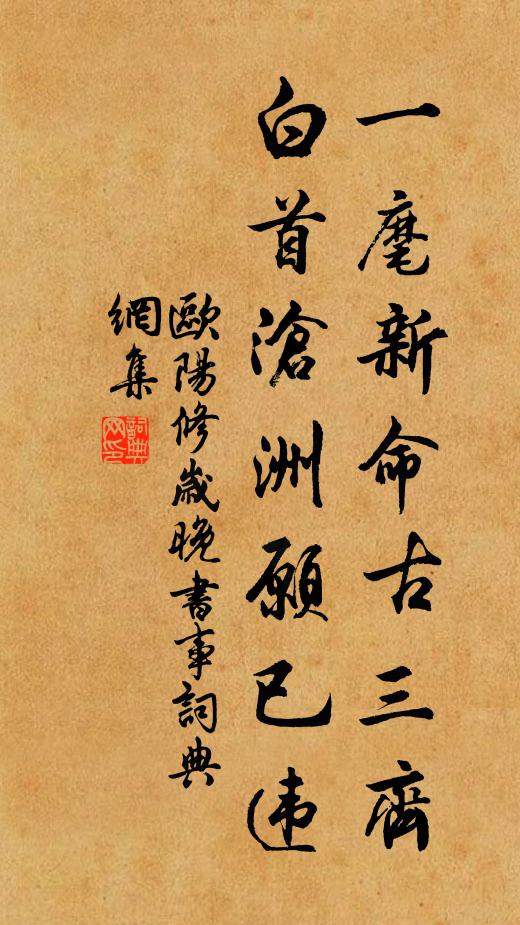 一麾新命古三齊
白首滄洲願已违
歐陽修歲晚書事詞典
網集
詞典
网印